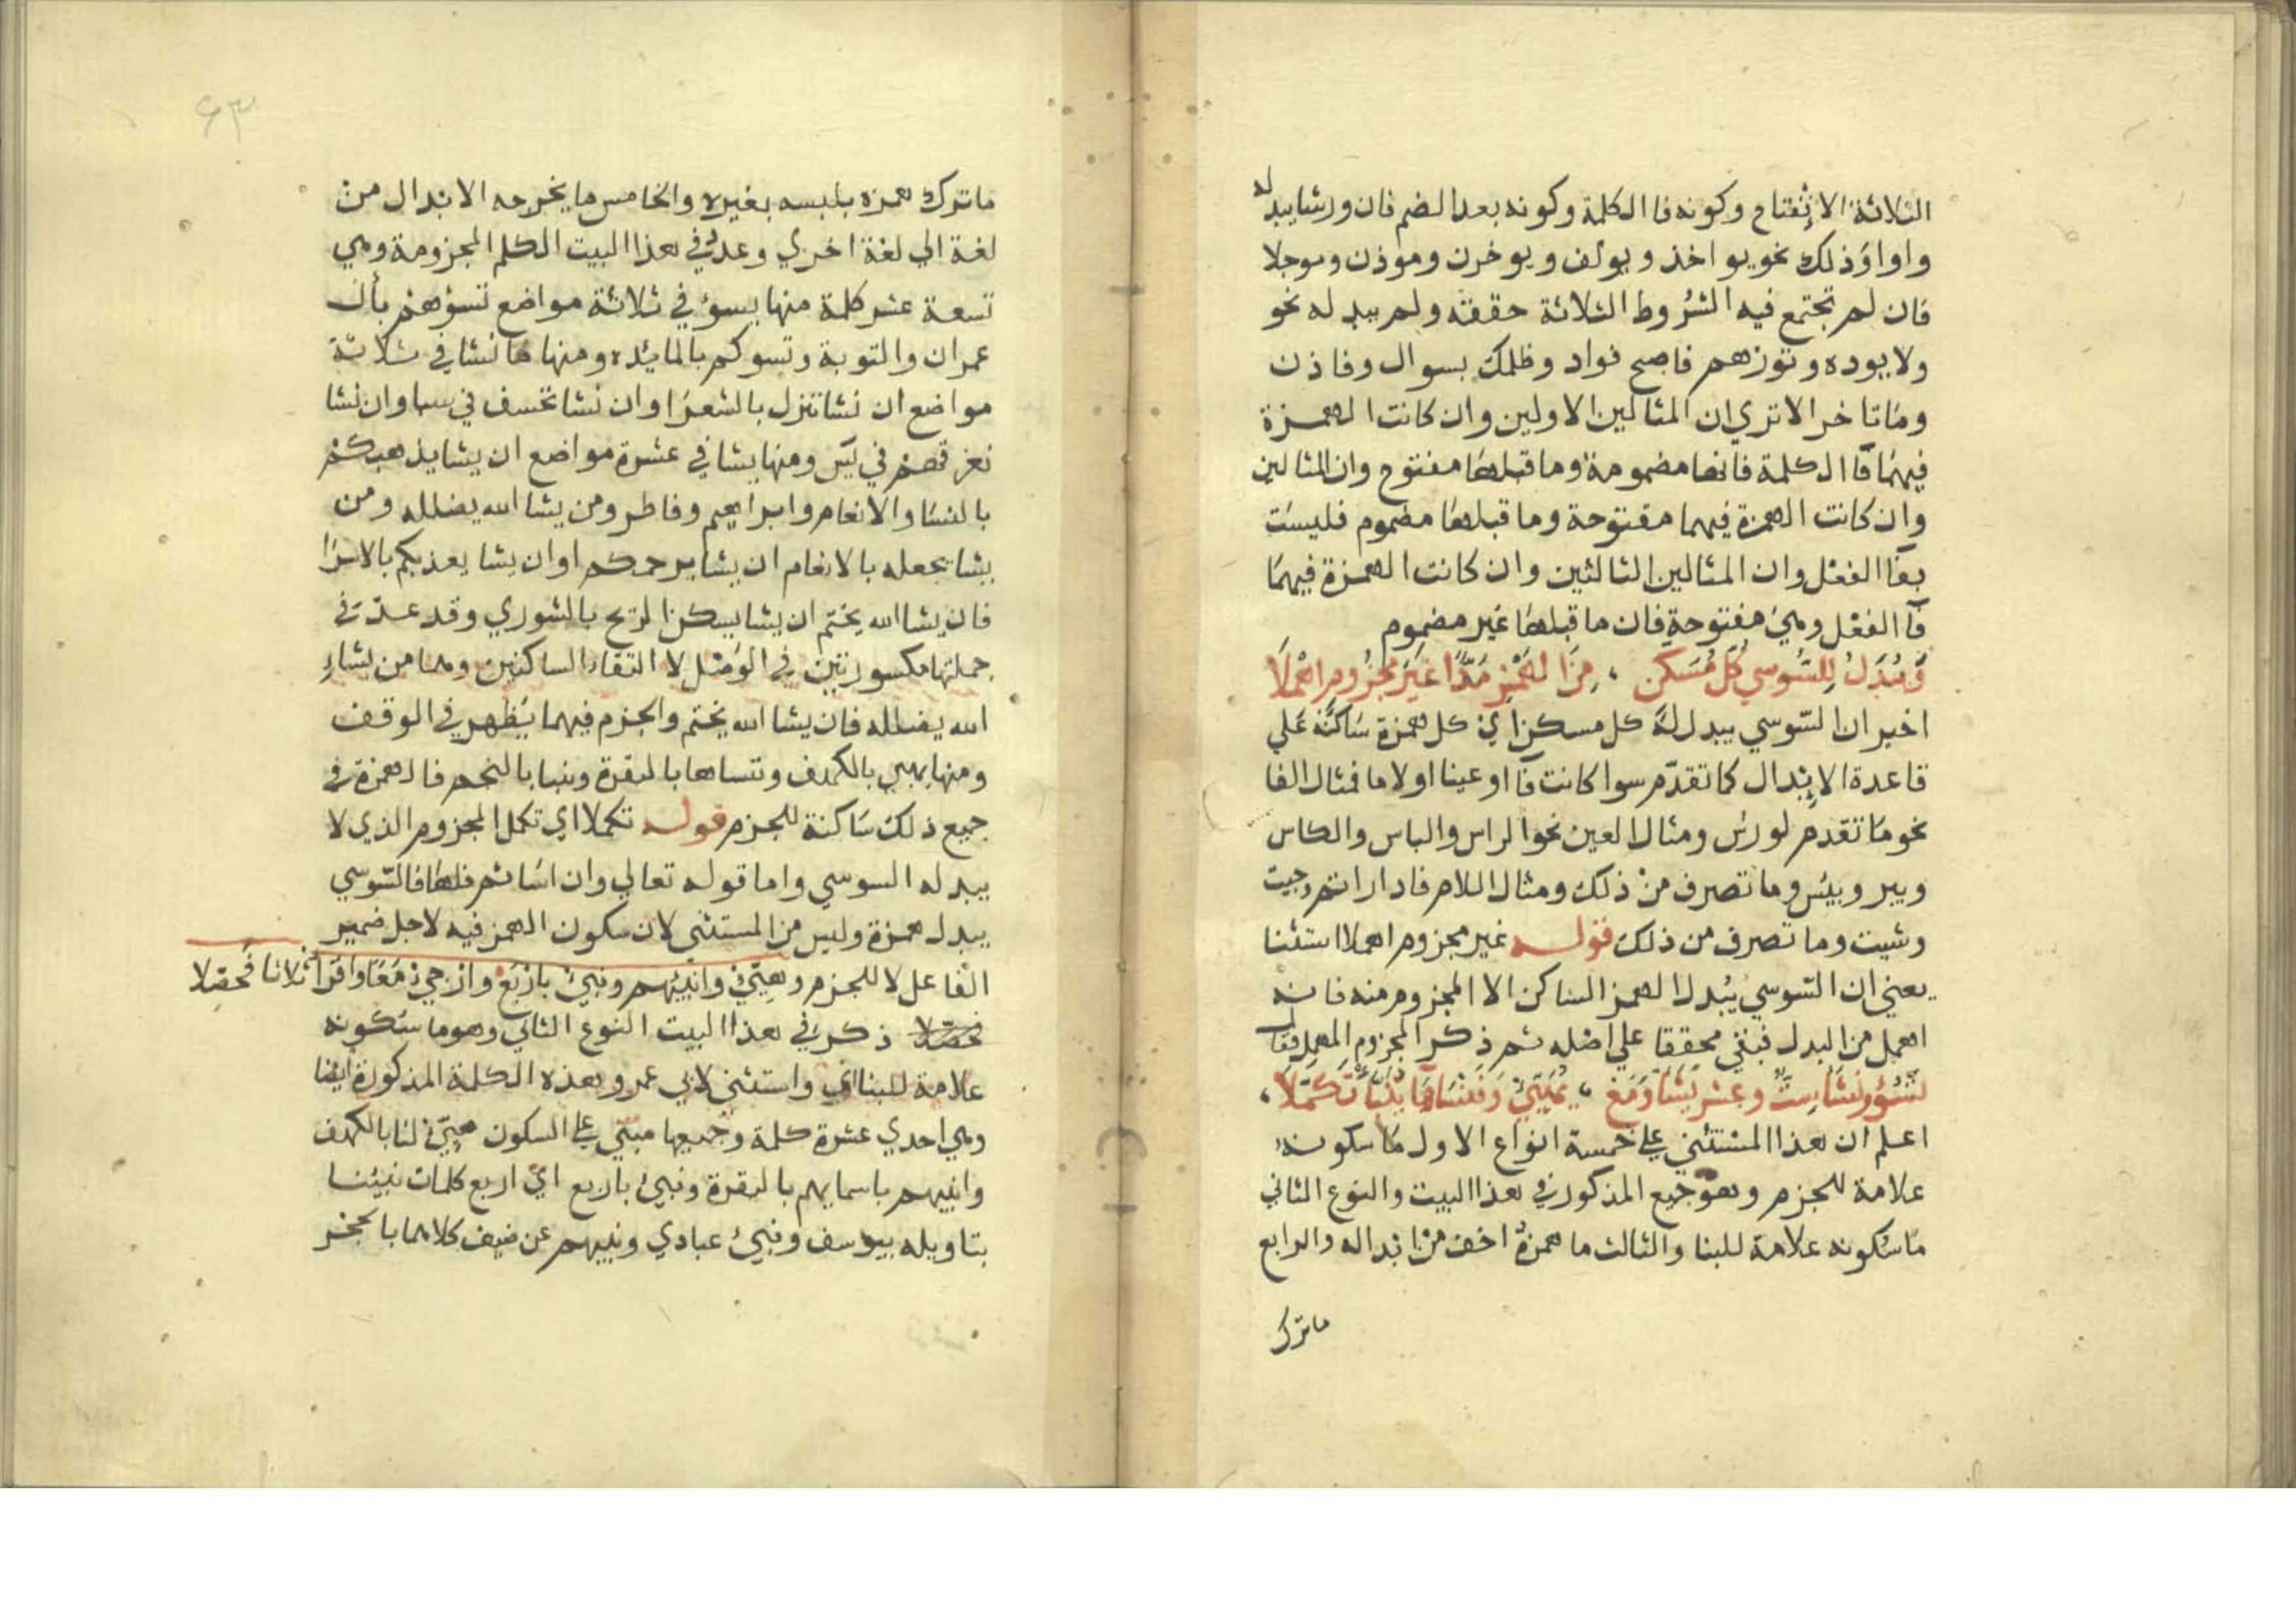 الثلاثة الانفتاح وكونه فا الكلمة وكونه بعد الضم فان ورشا يبدله
واوا وذلك نحو يواخذ ويولف ويوخرن وموذن وموجلا
فان لم تجتمع فيه الشروط الثلاثة حققه ولم يبدله نحو
ولا يوده وتوزهم فاصبح فواد وظلمك بسوال وفاذن
وما تاخر الا تري ان المثالين الاولين وان كانت الهمزة
فيهما فا الكلمة فانها مضمومة وما قبلها مفتوح وان المثالين
وان كانت الهمزة فيهما مفتوحة وما قبلها مضموم فليست
بفا الفعل وان المثالين الثالثين وان كانت الهمزة فيهما
فا الفعل وهي مفتوحة فان ما قبلها غير مضموم
وَيُبْدَلُ لِلسُّوسي كُلُّ مُسَكَّنٍ ، مِنَ الهَمْزِ مَدًّا غَيْرَ مَجْزُومٍ اهْمِلَا
اخبر ان السّوسي يبدل له كل مسكن اي كل همزة ساكنة علي
قاعدة الابدال كما تقدّم سوا كانت فا او عينا او لاما فمثال الفا
نحو ما تقدم لورش ومثال العين نحو الراس والباس والكاس
وبير وبيس وما تصرف من ذلك ومثال اللام فاداراتم وجيت
وشيت وما تصرف من ذلك قوله غير مجزوم اهملا استثنا
يعني ان السّوسي يبدل الهمز الساكن الا المجزوم منه فانه
اهمل من البدل فبقي محققا علي اصله ثم ذكر المجزوم المهمل فقال
تَسُؤْ ونَشَأْ سِتٌّ وعشرُ يَشَأْ وَمَعْ ، يُهَيِّئْ وَنَنْسَأْهَا يُنَبَّأْ تَكَمَّلَا ،
اعلم ان هذا المستثني علي خمسة انواع الاول ما سكونه
علامة للجزم وهو جميع المذكور في هذا البيت والنوع الثاني
ما سكونه علامة للبنا والثالث ما همزهُ اخف من ابداله والرابع
ما ترك
٦٣
ما ترك همزه يلبسه بغيره والخامس ما يخرجه الابدال من
لغة الي لغة اخري وعد في هذا البيت الكلم المجزومة وهي
تسعة عشر كلمة منها يسؤ في ثلاثة مواضع تسؤهم بآل
عمران والتوبة وتسوكم بالمايده ومنها ما نشا في ثلاثة
مواضع ان نشا ننزل بالشعرا وان نشا نخسف في سبا وان نشا
نغرقهم في يس ومنها يشا في عشرة مواضع ان يشا يذهبكم
بالنسا والانعام وابراهيم وفاطر ومن يشا الله يضلله ومن
يشا يجعله بالانعام ان يشا يرحمكم او ان يشا يعذبكم بالاسرا
فان يشا الله يختم ان يشا يسكن الريح بالشوري وقد عدّ في
جملتها مكسورتين في الوصل لالتقاء الساكنين وهما من يشاءِ
الله يضلله فان يشا الله يختم والجزم فيهما يظهر في الوقف
ومنها يهيي بالكهف وننساها بالبقرة وينبا بالنجم فالهمزة في
جميع ذلك ساكنة للجزم قوله تكملا اي تكمل المجزوم الذي لا
يبدله السوسي واما قوله تعالي وان اساتم فلها فالسّوسي
يبدل همزة وليس من المستثني لان سكون الهمز فيه لاجل ضمير
الفاعل لا للجزم وهيّئ وانبيهم ونبئ باربع وارجئ معا واقرا ثلاثا فحصّلا
فحصّلا ذكر في هذا البيت النوع الثاني وهو ما سكونه
علامة للبنا اي واستثني لابي عمرو هذه الكلمة المذكورة ايضا
وهي احدي عشرة كلمة وجميعها مبنيّ علي السكون هيّئ لنا بالكهف
وانبيهم باسمايهم بالبقرة ونبئ باربع اي اربع كلمات نبيئنا
بتاويله بيوسف ونبئ عبادي ونبيهم عن ضيف كلاهما بالحجر